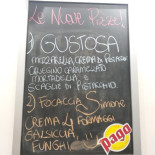 Le Nuove Pizze!
1) GUSTOSA
MOZZARELLA CREMA DI
CARAMELLATO
MORTADELLA E
SCAGLIE DI PISTACCHIO
2) FOCACCIA Simone
CREMA 4 FORMAGGI
SALSICCIA,
FUNGHI
pago